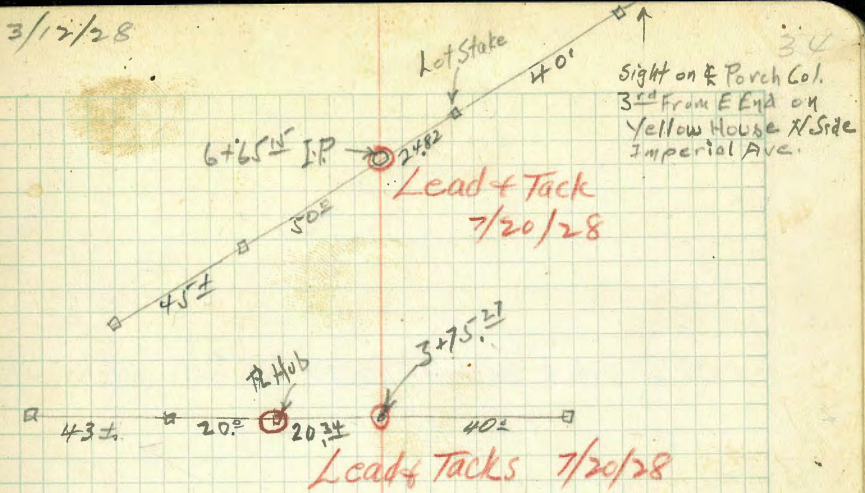 3/12/28
34
Lot Stake
40'
Sight on ℄ Porch Col.
3rd From E End on
Yellow House N Side
Imperial Ave.
6+65.15 I.P.
24.82
Lead & Tack
7/20/28
50.0
45±
3+75.27
Hub
43±
20.0
20.34
40±
Lead & Tacks 7/20/28